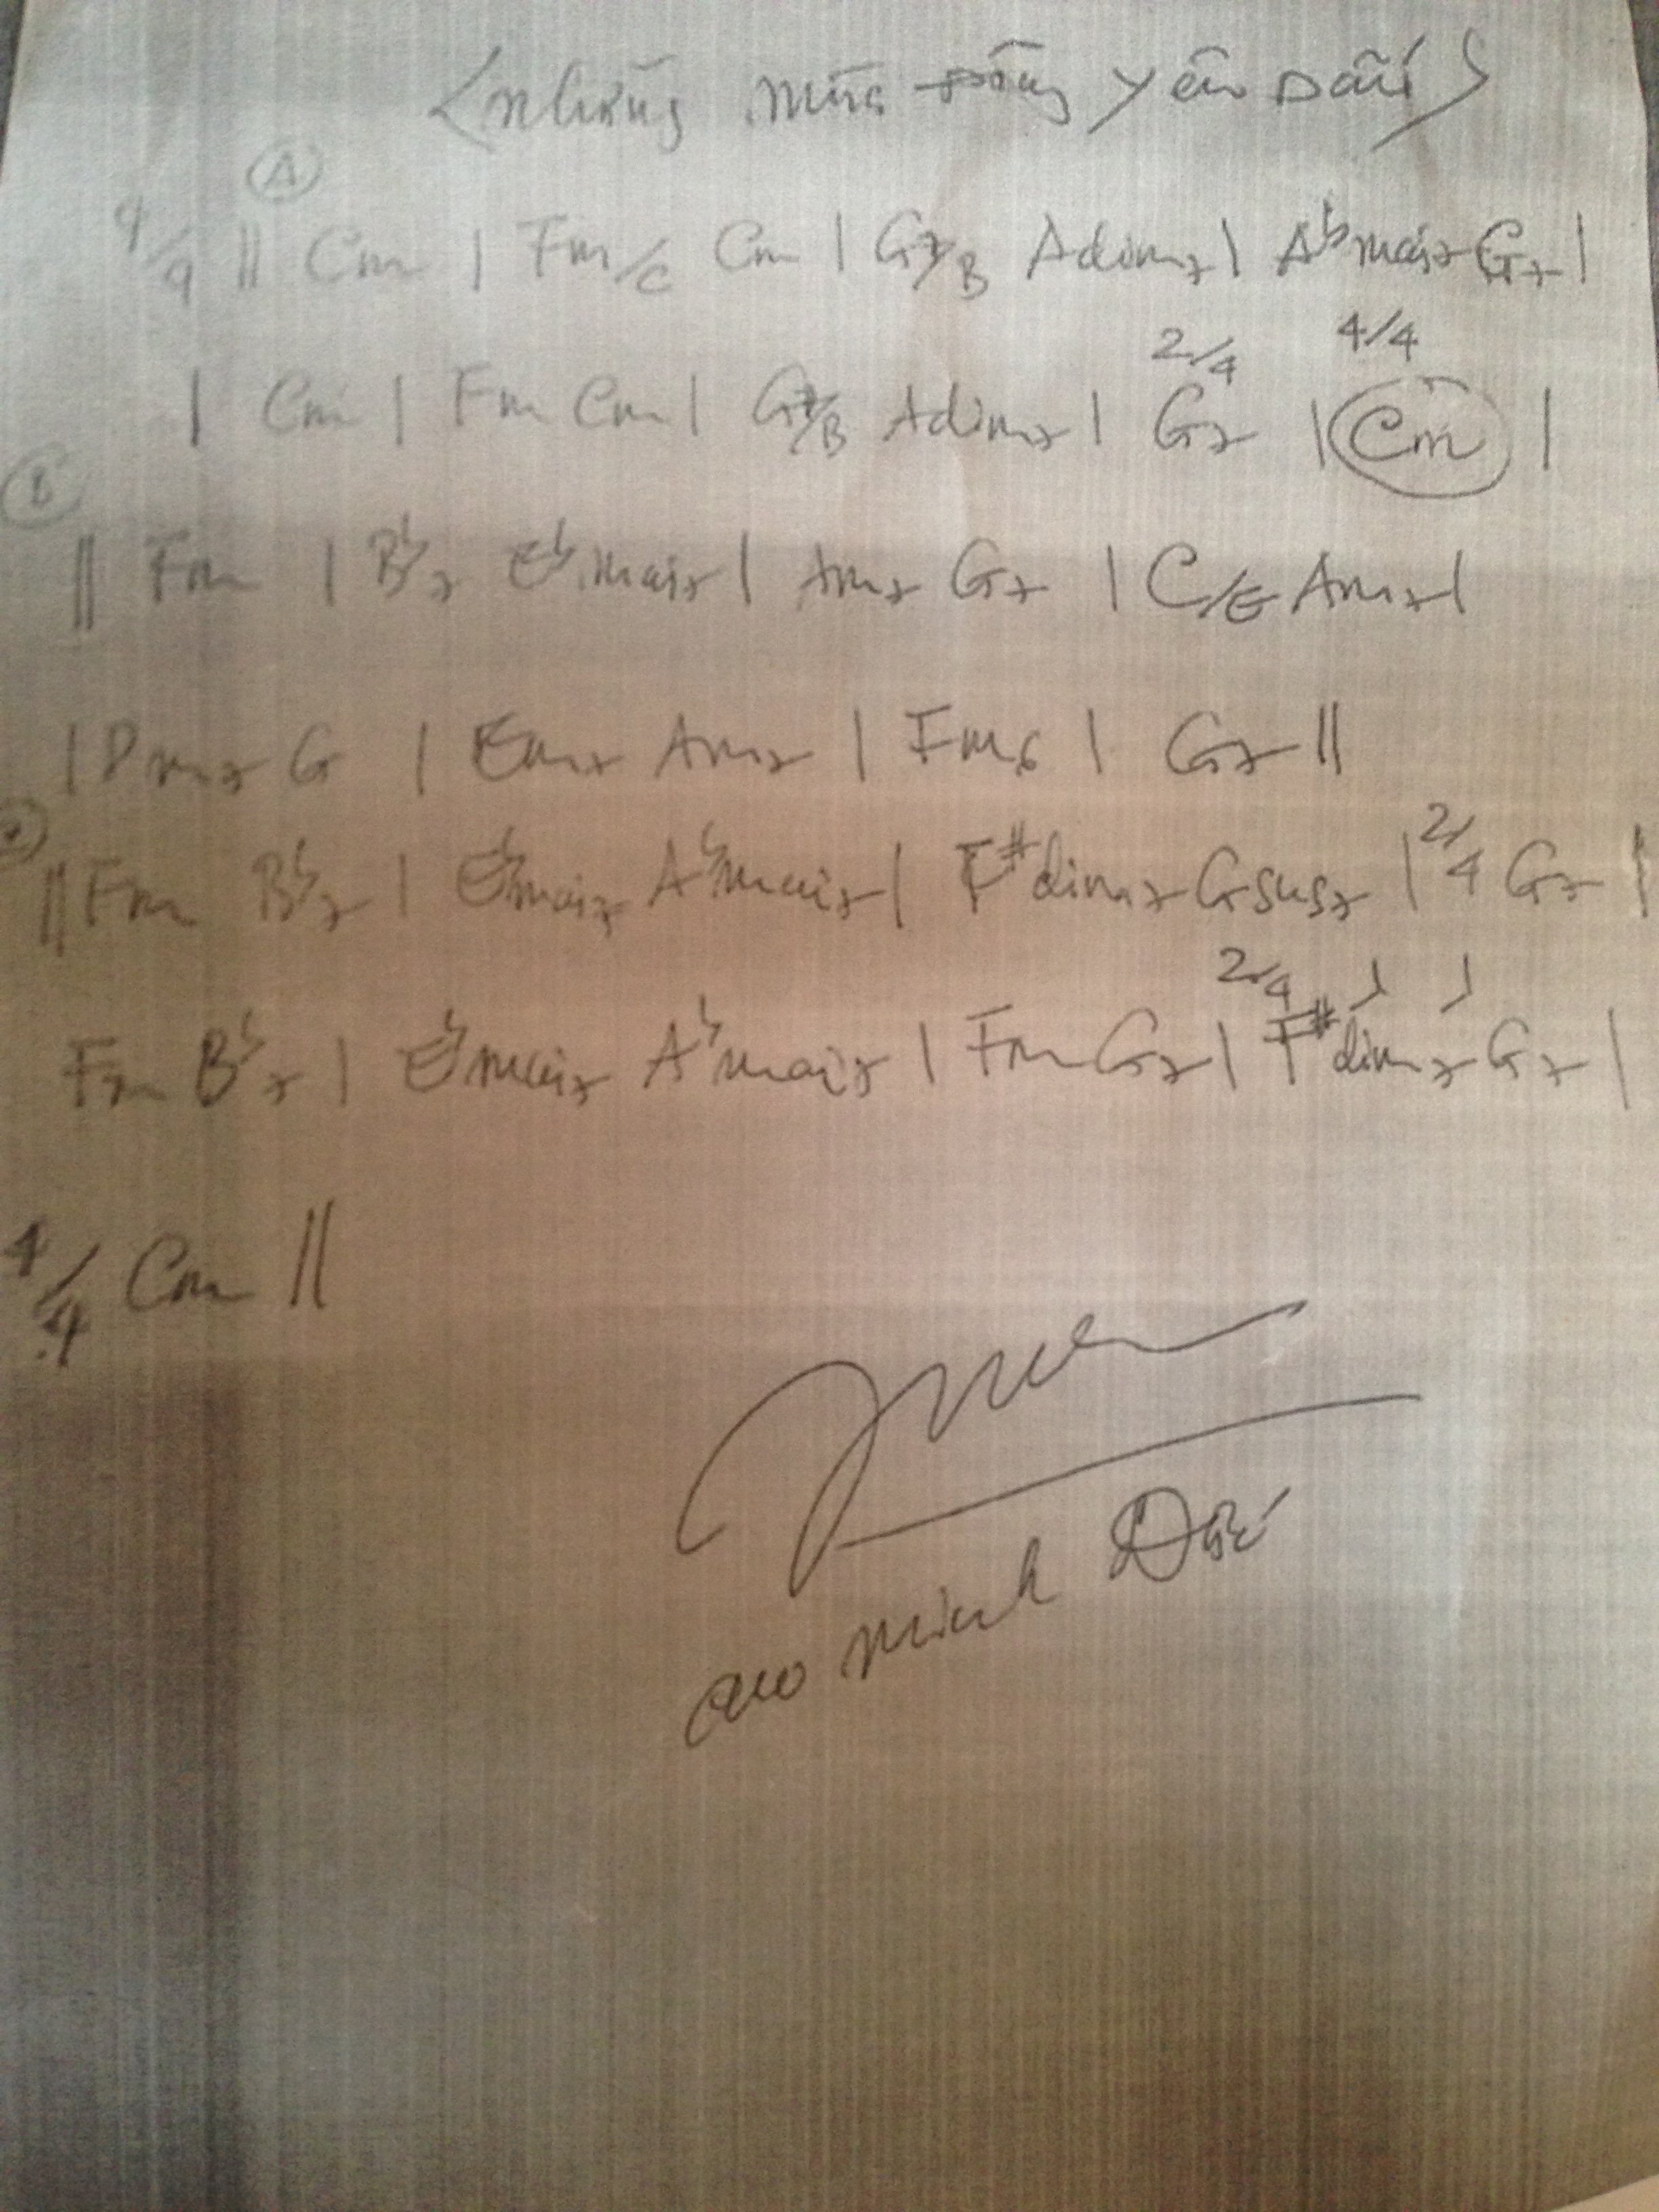 <Những mùa Đông yêu Dấu>
A
4/4 || Cm | Fm/C Cm | G7/B Adim7 | A♭maj7 G7 |
2/4 4/4
| Cm | Fm Cm | G7/B Adim7 | G7 | Cm |
B
|| Fm | B♭7 E♭maj7 | Am7 G7 | C/E Am7 |
| Dm7 G | Em7 Am7 | Fm6 | G7 ||
|| Fm B♭7 | E♭maj7 A♭maj7 | F#dim7 Gsus7 | 2/4 G7 |
2/4 > >
Fm B♭7 | E♭maj7 A♭maj7 | Fm G7 | F#dim7 G7 |
4/4 Cm ||
Minh